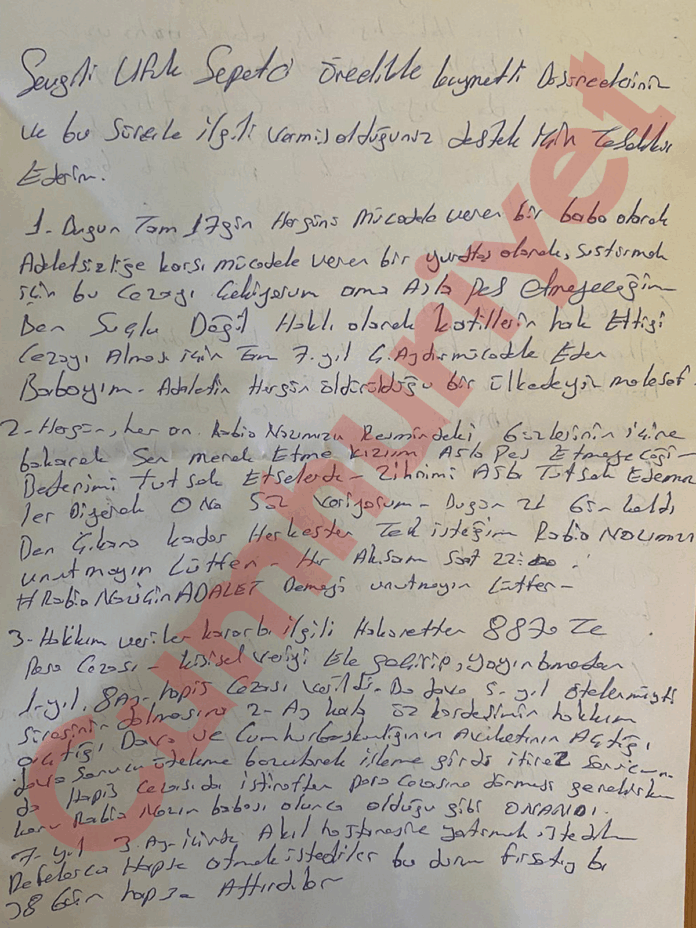 Sevgili Ufuk Sepetci öncelikle kıymetli Düşünceleriniz
ve bu Süreçle ilgili vermiş olduğunuz destek için Teşekkür
Ederim.
1- Bugün Tam 17 gün Hergünü Mücadele veren bir baba olarak
Adaletsizliğe karşı mücadele veren bir yurttaş olarak, susturmak
için bu cezayı Çekiyorum ama Asla pes etmeyeceğim
Ben Suçlu Değil Haklı olarak katillerin hak Ettiği
Cezayı Alması için Tam 7.yıl Aydır mücadele Eden
Babayım- Adaletin Hergün öldürüldüğü bir ülkedeyim malesef.
2- Hergün, her an. Rabia Nazımızın Resmindeki Gözlerinin içine
bakarak Sen merak Etme kızım Asla Pes Etmeyeceğiz-
Bedenimi Tutsak Etselerde- Zihnimi Asla Tutsak Edemez
ler Diyerek Ona Söz veriyorum- Bugün 21 Gün kaldı
Ben Çıkana kadar Herkesten Tek isteğim Rabia Nazımızı
unutmayın Lütfen- Her Akşam Saat 22:00
#RabiaNaziçinADALET Demeyi unutmayın Lütfen-
3- Hakkım verilen kararla ilgili Hakaretten 8870 TL
Para Cezası- kişisel veriyi Ele geçirip, yayınlamadan
1-yıl. 8 Ay- hapis Cezası verildi- Bu dava 5-yıl ötelenmişti
Süresinin dolmasına 2- Ay kala öz kardeşimin hakkım
açtığı Dava ve Cumhurbaşkanlığının Avukatının Açtığı
dava Sonucu öteleme bozularak işleme girdi itiraz
da Hapis Cezasıda istinaftan para cezasına dönmesi gerekirken
konu Rabia Nazın babası olunca olduğu gibi ONANDI.
7- yıl 3. Ay içinde Akıl hastanesine yatırmak istediler
Defalarca Hapse Atmak istediler bu durum fırsatıyla
38 Gün hapse Attırdılar
Cumhuriyet